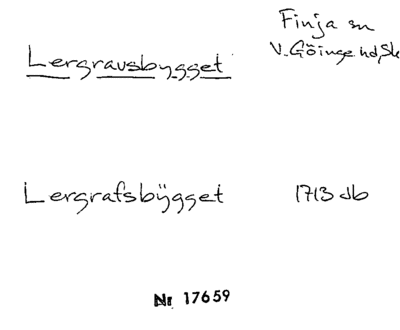 Finja sn
Lergravsbygget V. Göinge hd, Sk
Lergrafsbÿgget 1713 Jb
Nr 17659